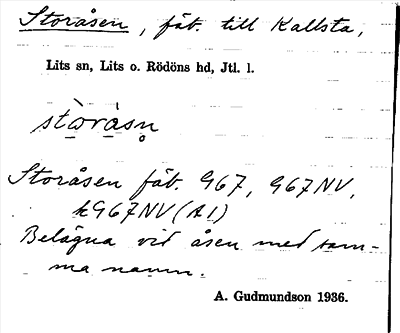 Storåsen, fäb. till Kallsta,
Lits sn, Lits o. Rödöns hd, Jtl. l.
stò̱rà̱sn̥
Storåsen fäb. G67, G67NV,
kG67NV(A1)
Belägna vid åsen med sam-
ma namn.
A. Gudmundson 1936.